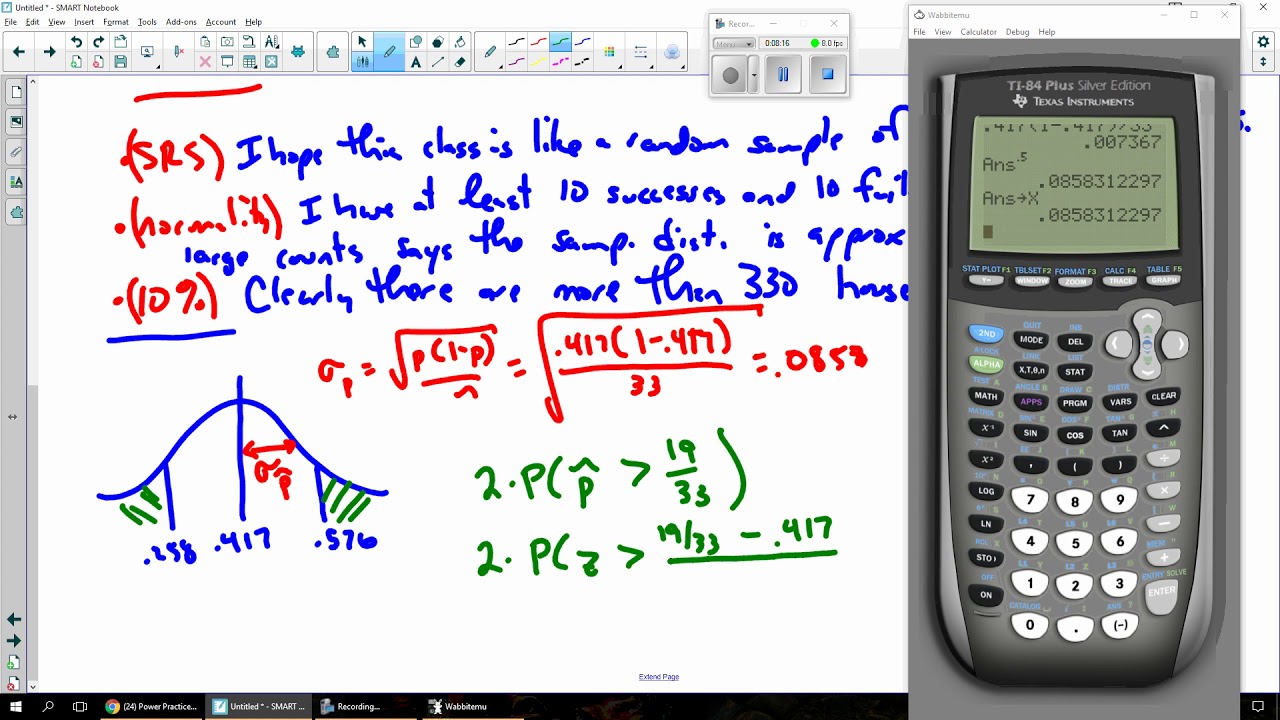 Untitled * - SMART Notebook
File Edit View Insert Format Tools Add-ons Account Help
Recor...
Menu 0:08:16 8.0 fps
Wabbitemu
File View Calculator Debug Help
•(SRS) I hope this class is like a random sample of
•(normality) I have at least 10 successes and 10 fail
large counts says the samp. dist. is approx
•(10%) Clearly there are more than 330 house
σp = √p(1-p)/n = √.417(1-.417)/33 = .0858
σp̂
.258 .417 .576
2·P(p̂ > 19/33)
2·P(z > 19/33 - .417
Extend Page
TI-84 Plus Silver Edition
TEXAS INSTRUMENTS
.417(1-.417)/33
.007367
Ans^.5
.0858312297
Ans→X
.0858312297
STAT PLOT F1 TBLSET F2 FORMAT F3 CALC F4 TABLE F5
Y= WINDOW ZOOM TRACE GRAPH
QUIT INS
2ND MODE DEL
A-LOCK LINK LIST
ALPHA X,T,θ,n STAT
TEST A ANGLE B DRAW C DISTR
MATH APPS PRGM VARS CLEAR
MATRIX D SIN⁻¹ E COS⁻¹ F TAN⁻¹ G π H
x⁻¹ SIN COS TAN ^
x² , ( ) ÷
LOG 7 8 9 ×
LN 4 5 6 −
RCL X
STO› 1 2 3 +
OFF CATALOG ANS ? ENTRY SOLVE
ON 0 . (-) ENTER
(24) Power Practice... Untitled * - SMAR... Recording... Wabbitemu